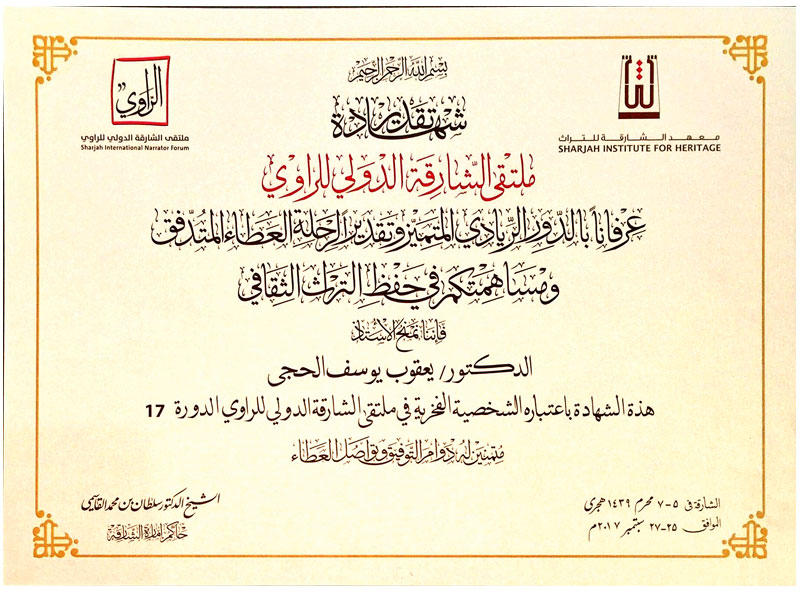 بسم الله الرحمن الرحيم
الراوي
ملتقى الشارقة الدولي للراوي
Sharjah International Narrator Forum
معهد الشارقة للتراث
SHARJAH INSTITUTE FOR HERITAGE
شهادة تقدير
ملتقى الشارقة الدولي للراوي
عرفاناً بالدور الريادي المتميز وتقديراً لرحلة العطاء المتدفق
ومساهمتكم في حفظ التراث الثقافي
فإننا نمنح الأستاذ
الدكتور/ يعقوب يوسف الحجى
هذة الشهادة باعتباره الشخصية الفخرية في ملتقى الشارقة الدولي للراوي الدورة 17
متمنين له دوام التوفيق وتواصل العطاء
الشارقة في ٥-٧ محرم ١٤٣٩ هجري
الموافق ٢٥-٢٧ سبتمبر ٢٠١٧م
الشيخ الدكتور سلطان بن محمد القاسمي
حاكم إمارة الشارقة